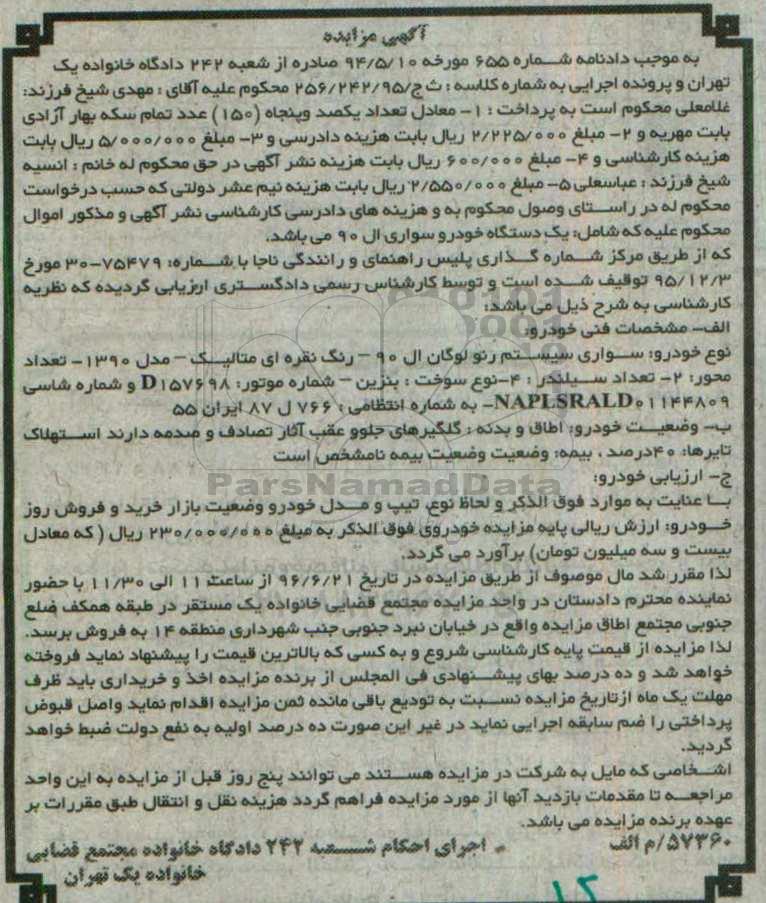 آگهی مزایده
به موجب دادنامه شماره ۶۵۵ مورخه ۹۴/۵/۱۰ صادره از شعبه ۲۴۲ دادگاه خانواده یک
تهران و پرونده اجرایی به شماره کلاسه : ث ج/۲۵۶/۲۴۲/۹۵ محکوم علیه آقای : مهدی شیخ فرزند:
غلامعلی محکوم است به پرداخت : ۱- معادل تعداد یکصد وپنجاه (۱۵۰) عدد تمام سکه بهار آزادی
بابت مهریه و ۲- مبلغ ۲/۲۲۵/۰۰۰ ریال بابت هزینه دادرسی و ۳- مبلغ ۵/۰۰۰/۰۰۰ ریال بابت
هزینه کارشناسی و ۴- مبلغ ۶۰۰/۰۰۰ ریال بابت هزینه نشر آگهی در حق محکوم له خانم : انسیه
شیخ فرزند : عباسعلی ۵- مبلغ ۲/۵۵۰/۰۰۰ ریال بابت هزینه نیم عشر دولتی که حسب درخواست
محکوم له در راستای وصول محکوم به و هزینه های دادرسی کارشناسی نشر آگهی و مذکور اموال
محکوم علیه که شامل: یک دستگاه خودرو سواری ال ۹۰ می باشد.
که از طریق مرکز شماره گذاری پلیس راهنمای و رانندگی ناجا با شماره: ۷۵۴۷۹-۳۰ مورخ
۹۵/۱۲/۳ توقیف شده است و توسط کارشناس رسمی دادگستری ارزیابی گردیده که نظریه
کارشناسی به شرح ذیل می باشد:
الف- مشخصات فنی خودرو:
نوع خودرو: سواری سیستم رنو لوگان ال ۹۰ – رنگ نقره ای متالیک – مدل ۱۳۹۰- تعداد
محور: ۲- تعداد سیلندر : ۴-نوع سوخت : بنزین – شماره موتور: D۱۵۷۶۹۸ و شماره شاسی
NAPLSRALD۰۱۱۴۴۸۰۹- به شماره انتظامی : ۷۶۶ ل ۸۷ ایران ۵۵
ب- وضعیت خودرو: اطاق و بدنه : گلگیرهای جلوو عقب آثار تصادف و صدمه دارند استهلاک
تایرها: ۴۰درصد ، بیمه: وضعیت وضعیت بیمه نامشخص است
ج- ارزیابی خودرو:
با عنایت به موارد فوق الذکر و لحاظ نوع، تیپ و مدل خودرو وضعیت بازار خرید و فروش روز
خودرو: ارزش ریالی پایه مزایده خودروی فوق الذکر به مبلغ ۲۳۰/۰۰۰/۰۰۰ ریال ( که معادل
بیست و سه میلیون تومان) برآورد می گردد.
لذا مقرر شد مال موصوف از طریق مزایده در تاریخ ۹۶/۶/۲۱ از ساعت ۱۱ الی ۱۱/۳۰ با حضور
نماینده محترم دادستان در واحد مزایده مجتمع قضایی خانواده یک مستقر در طبقه همکف ضلع
جنوبی مجتمع اطاق مزایده واقع در خیابان نبرد جنوبی جنب شهرداری منطقه ۱۴ به فروش برسد.
لذا مزایده از قیمت پایه کارشناسی شروع و به کسی که بالاترین قیمت را پیشنهاد نماید فروخته
خواهد شد و ده درصد بهای پیشنهادی فی المجلس از برنده مزایده اخذ و خریداری باید ظرف
مهلت یک ماه ازتاریخ مزایده نسبت به تودیع باقی مانده ثمن مزایده اقدام نماید واصل قبوض
پرداختی را ضم سابقه اجرایی نماید در غیر این صورت ده درصد اولیه به نفع دولت ضبط خواهد
گردید.
اشخاصی که مایل به شرکت در مزایده هستند می توانند پنج روز قبل از مزایده به این واحد
مراجعه تا مقدمات بازدید آنها از مورد مزایده فراهم گردد هزینه نقل و انتقال طبق مقررات بر
عهده برنده مزایده می باشد.
۵۷۳۶۰/م الف
اجرای احکام شعبه ۲۴۲ دادگاه خانواده مجتمع قضایی
خانواده یک تهران
ParsNamadData